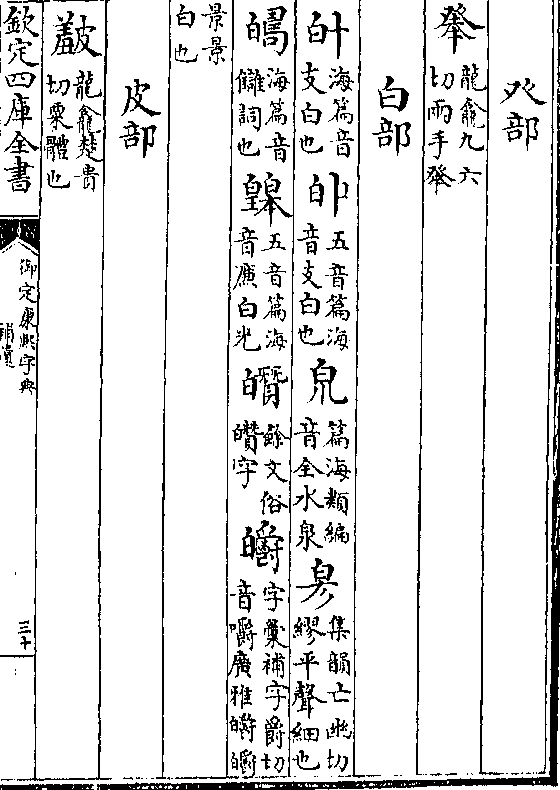 癶部
龍龕九六切兩手
白部
海篇音支白也 五音篇海音支白也 篇海類編音全水泉 集韻亡幽切繆平聲細也
海篇音讎詞也 五音篇海音廣白光 餘文俗字 皭字彙補字爵切音嚼廣雅皭皭
景景白也
皮部
龍龕楚貴切粟體也
欽定四庫全書
御定康熙字典
補遺
三十